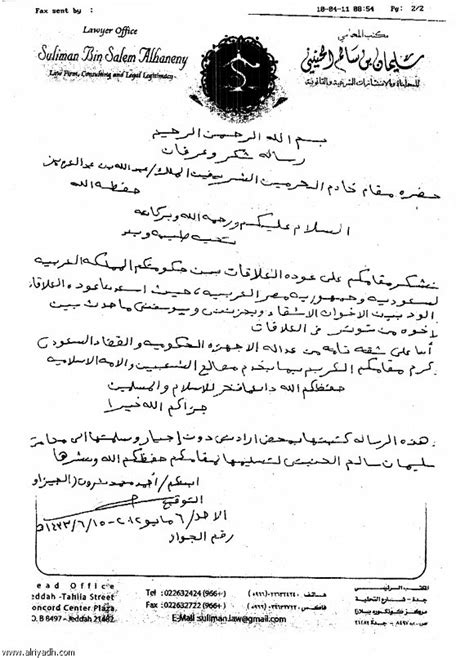 Fax sent by :
10-04-11 08:54 Pg: 2/2
Lawyer Office
Suliman Bin Salem Alhaneny
Law Firm, Consulting and Legal Legitimacy
مكتب المحامي
سليمان بن سالم الحنيني
للمحاماة والاستشارات الشرعية والقانونية
بسم الله الرحمن الرحيم
رسالة شكر وعرفان
حضره مقام خادم الحرمين الشريفين الملك/ عبدالله بن عبدالعزيز
حفظه الله
السلام عليكم ورحمة الله وبركاته
تحيه طيبه وبعد
نشكر مقامكم على عوده العلاقات بين حكومتكم المملكه العربيه
السعوديه وجمهوريه مصر العربيه، حيث عوده العلاقات
الود بين الاخوان الاشقاء ويحزنني ويؤسفني ماحدث بين
الاخوه من توتر في العلاقات
أنا على ثقه تامه من عداله الاجهزه الحكوميه والقضاء السعودي
كرم مقامكم الكريم بما يخدم مصالح الشعبين والامه الاسلاميه
حفظكم الله دائما فخر للاسلام والمسلمين
جزاكم الله خيرا
هذه الرساله كتبتها بمحض ارادتي دون إجبار وسلمتها الى محامي
سليمان سالم الحنيني لتسليمها لمقامكم حفظكم الله ونشرها
ابنكم/ أحمد محمد ثروت (الجيزاوي)
التوقيع
الاحد/ ٦ مايو ٢٠١٢ - ١٥/٦/١٤٣٣ه
رقم الجواز
ead Office
eddah -Tahlia Street
oncord Center Plaza,
O.B 8497 - Jeddah 21482
Tel : 022632424 (966+)
Fax : 022632722 (966+)
E-Mail :suliman.law@gmail.com
المكتب الرئيسي
جدة - شارع التحلية
مركز كونكورد بلازا
www.alriyadh.com